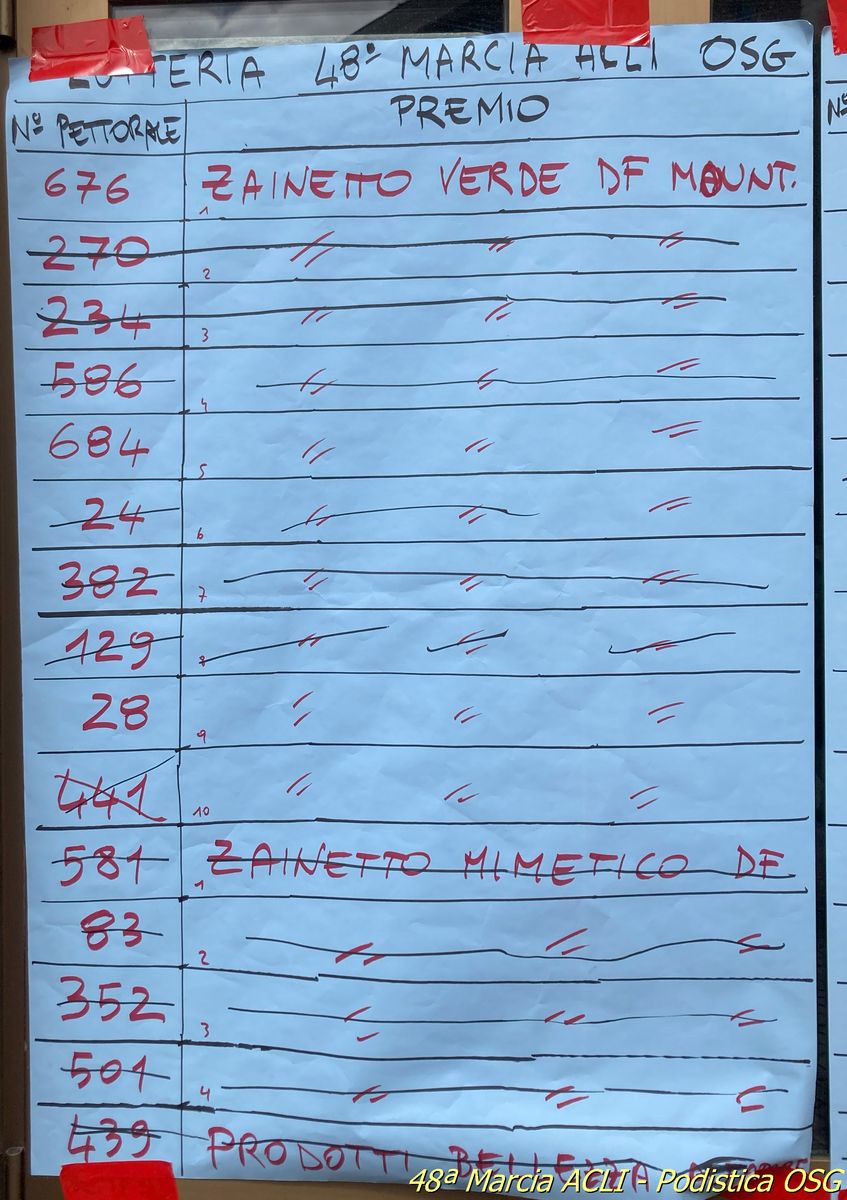 LOTTERIA 48º MARCIA ACLI OSG
Nº PETTORALE PREMIO
676 1 ZAINETTO VERDE DF MOUNT.
270 2 〃 〃 〃
234 3 〃 〃 〃
586 4 〃 〃 〃
684 5 〃 〃 〃
24 6 〃 〃 〃
382 7 〃 〃 〃
129 8 〃 〃 〃
28 9 〃 〃 〃
441 10 〃 〃 〃
581 1 ZAINETTO MIMETICO DF
83 2 〃 〃 〃
352 3 〃 〃 〃
501 4 〃 〃 〃
439 PRODOTTI BELLEZZA
Nº
48ª Marcia ACLI - Podistica OSG